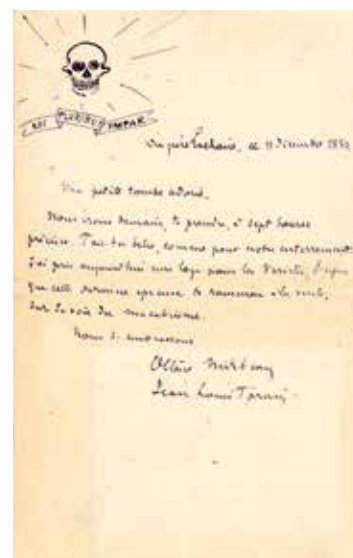 NEC PLURIBUS IMPAR
Du père Lachaise, ce 11 Décembre 188
Ma petite tombe adorée,
Nous irons demain, te prendre, à sept heures
précises. Fais-toi belle, comme pour notre enterrement.
J'ai pris aujourd'hui une loge pour les Variétés,
que cette dernière épreuve te ramènera
sur la voie du macabrisme.
Nous t'embrassons
Octave Mirbeau
Jean Louis Forain